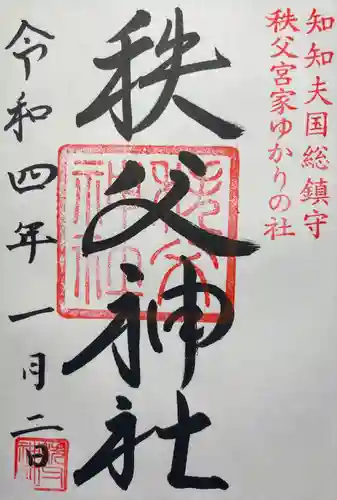 知知夫国総鎮守
秩父宮家ゆかりの社
秩父神社
令和四年一月二日
秩父神社